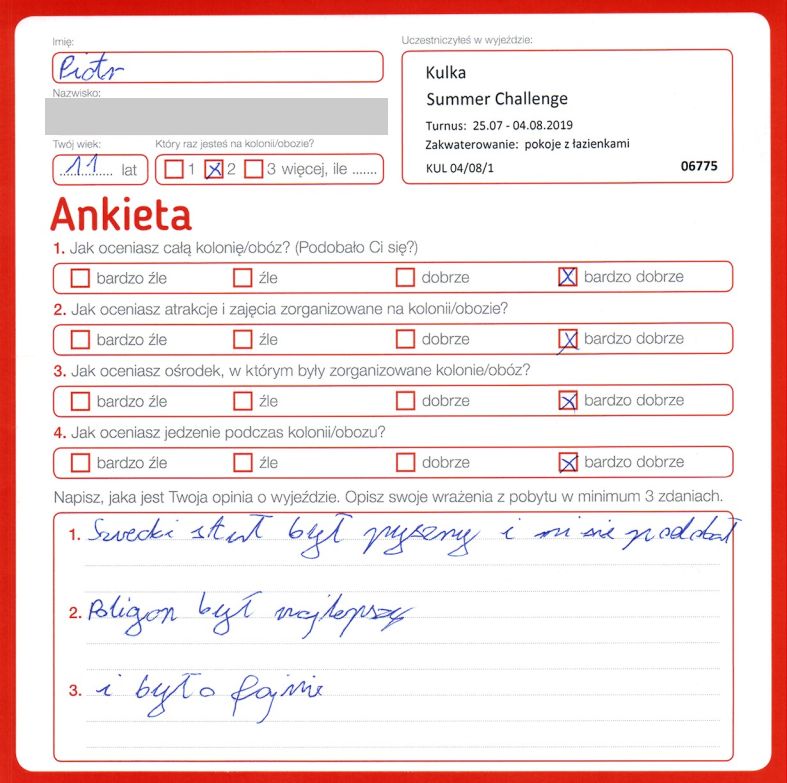 Imię:
Piotr
Nazwisko:
Twój wiek:
11 lat
Który raz jesteś na kolonii/obozie?
1 2 3 więcej, ile .......
Uczestniczyłeś w wyjeździe:
Kulka
Summer Challenge
Turnus: 25.07 - 04.08.2019
Zakwaterowanie: pokoje z łazienkami
KUL 04/08/1 06775
Ankieta
1. Jak oceniasz całą kolonię/obóz? (Podobało Ci się?)
bardzo źle źle dobrze bardzo dobrze
2. Jak oceniasz atrakcje i zajęcia zorganizowane na kolonii/obozie?
bardzo źle źle dobrze bardzo dobrze
3. Jak oceniasz ośrodek, w którym były zorganizowane kolonie/obóz?
bardzo źle źle dobrze bardzo dobrze
4. Jak oceniasz jedzenie podczas kolonii/obozu?
bardzo źle źle dobrze bardzo dobrze
Napisz, jaka jest Twoja opinia o wyjeździe. Opisz swoje wrażenia z pobytu w minimum 3 zdaniach.
1. Szwecki stuł był pyszny i mi sie
2. Poligon był najlepszy
3. i było fajnie